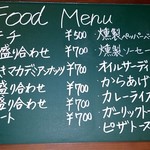 Food Menu
チ ¥500
盛り合わせ ¥700
きマカデミアナッツ ¥700
盛り合わせ ¥700
盛り合わせ ¥700
ート ¥700
・燻製ペッパー
・燻製ソーセー
オイルサーディ
からあげ
カレーライス
ガーリックトー
ピザトース